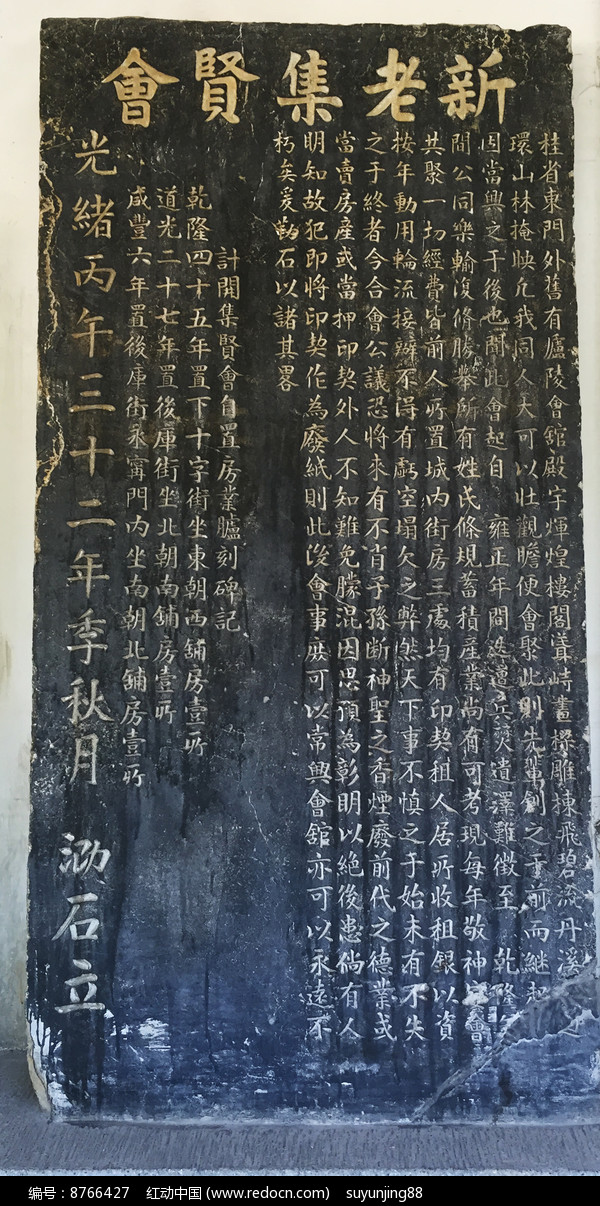 新老集賢會
桂省東門外舊有廬陵會舘殿宇煇煌樓閣聳峙畫樑雕棟飛碧流丹溪
環山林掩映凢我同人大可以壯觀瞻使會聚此則先輩創之于前而継起
因當興之于後也問此會起自 雍正年間迭遭兵火遺澤難徵至 乾隆
間公同樂輸復脩勝舉所有姓氏條規蓄積産業尚有可考現每年敬神會
共聚一切經費皆前人所置城内街房三處均有印契租人居所收租銀以資
按年動用輪流接辦不淂有虧空塌欠之弊然天下事不慎之于始未有不失
之于終者今合會公議恐將來有不肖子孫断神聖之香煙廢前代之德業或
當賣房産或當押印契外人不知難免朦混因思預為彰明以絶後患倘有人
明知故犯即將印契作為廢紙則此後會事庻可以常興會舘亦可以永遠不
朽矣爰勒石以諸其畧
計開集賢會自置房業臚刻碑記
乾隆四十五年置下十字街坐東朝西舖房壹所
道光二十七年置後庫街坐北朝南舖房壹所
咸豐六年置後庫街永甯門内坐南朝北舖房壹所
光緒丙午三十二年季秋月 泐石立
编号：8766427 红动中国 (www.redocn.com) suyunjing88